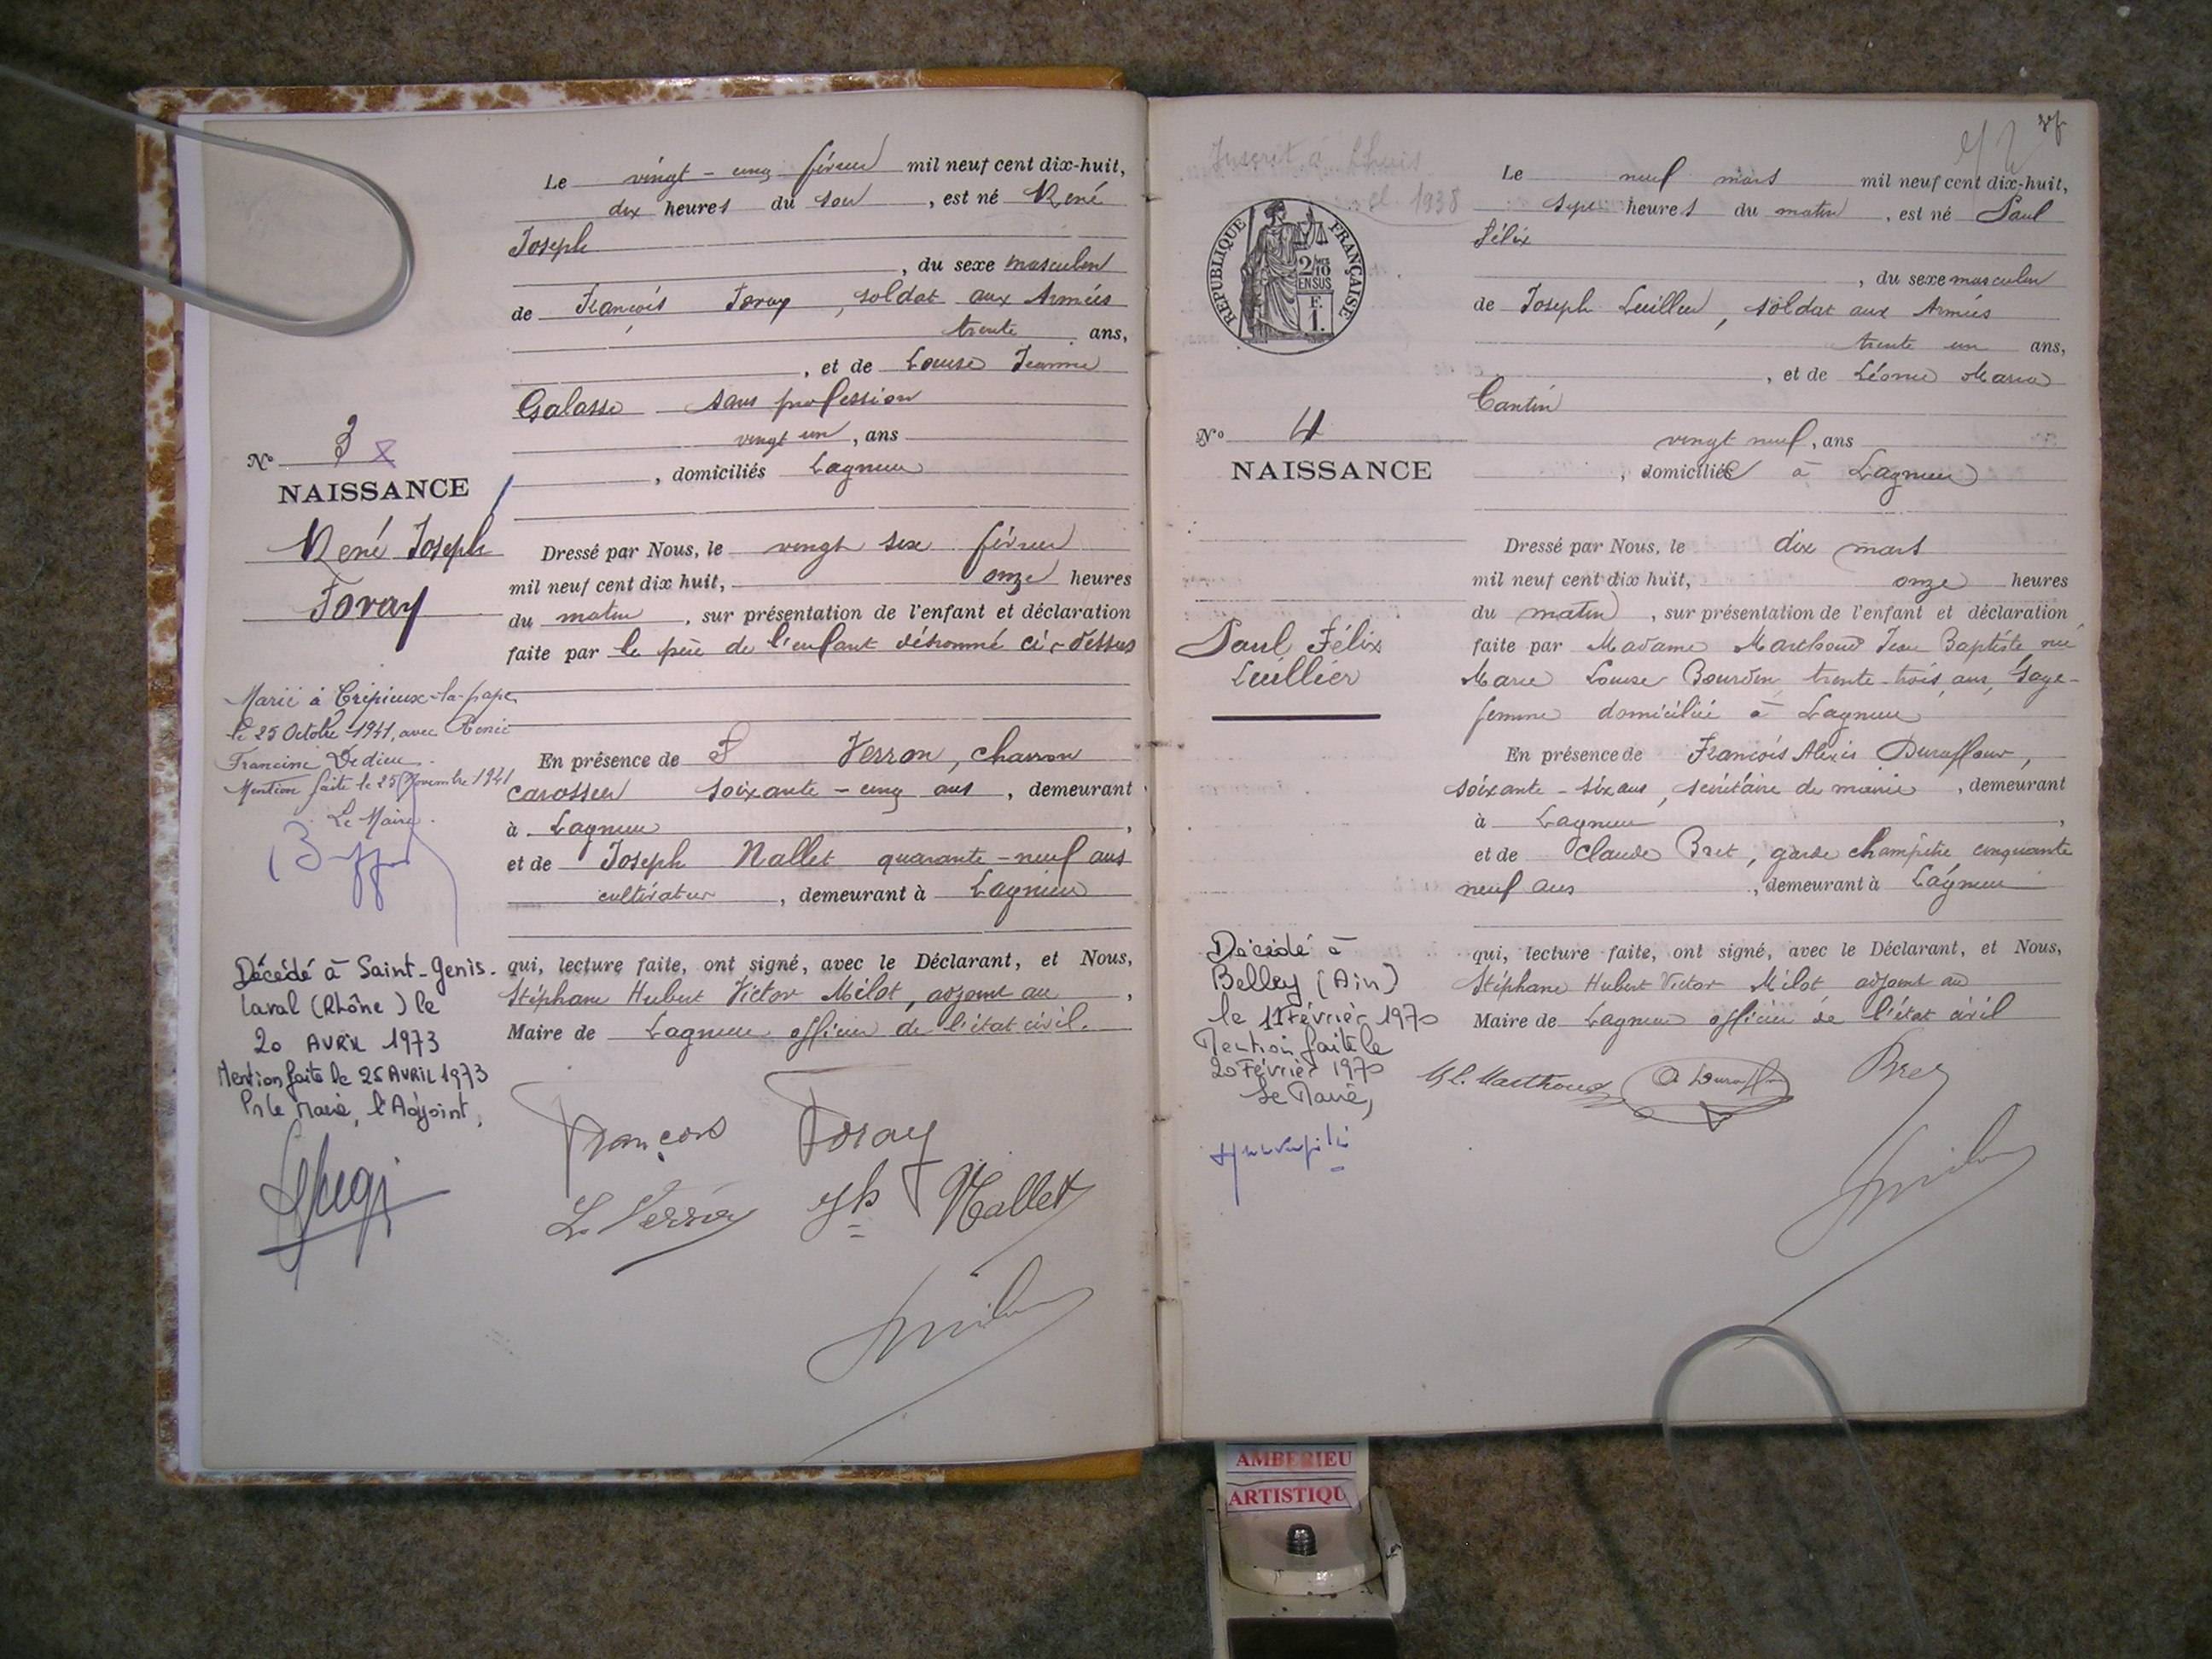 Le vingt-cinq février mil neuf cent dix-huit,
dix heures du soir, est né René
Joseph
, du sexe masculin
de François Foray, soldat aux Armées
trente ans,
, et de Louise Jeanne
Galasso sans profession
vingt un, ans
, domiciliés Lagnieu
N° 3
NAISSANCE
René Joseph
Foray
Dressé par Nous, le vingt six février
mil neuf cent dix huit, onze heures
du matin, sur présentation de l'enfant et déclaration
faite par le père de l'enfant dénommé ci-dessus
En présence de Verron, charron
carossier soixante-cinq ans, demeurant
à Lagnieu,
et de Joseph Nallet quarante-neuf ans
cultivateur, demeurant à Lagnieu
qui, lecture faite, ont signé, avec le Déclarant, et Nous,
Stéphane Hubert Victor Milot, adjoint au,
Maire de Lagnieu officier de l'état civil.
François Foray
L. Verron Jh Nallet
Marié à Crépieux-la-pape
le 25 Octobre 1941, avec Renée
Francine Dedieu.
Mention faite le 25 Novembre 1941
Le Maire.
Décédé à Saint-Genis-
Laval (Rhône) le
20 AVRIL 1973
Mention faite le 25 AVRIL 1973
Pr le Maire, l'Adjoint,
Inscrit à Lhuis
cl 1938
REPUBLIQUE FRANÇAISE
2/10 EN SUS
F. 1.
Le neuf mars mil neuf cent dix-huit,
sept heures du matin, est né Paul
Félix
, du sexe masculin
de Joseph Luillier, soldat aux Armées
trente un ans,
, et de Léonie Maria
Cantin
vingt neuf, ans
, domiciliés à Lagnieu
N° 4
NAISSANCE
Paul Félix
Luillier
Dressé par Nous, le dix mars
mil neuf cent dix huit, onze heures
du matin, sur présentation de l'enfant et déclaration
faite par Madame Marthoud Jean Baptiste, née
Marie Louise Bourdin, trente-trois ans, sage-
femme domiciliée à Lagnieu
En présence de François Alexis Duraffour,
soixante-six ans, secrétaire de mairie, demeurant
à Lagnieu,
et de Claude Bret, garde champêtre, cinquante
neuf ans, demeurant à Lagnieu
qui, lecture faite, ont signé, avec le Déclarant, et Nous,
Stéphane Hubert Victor Milot adjoint au
Maire de Lagnieu officier de l'état civil
M. L. Marthoud A Duraffour Bret
Décédé à
Belley (Ain)
le 11 Février 1970
Mention faite le
20 Février 1970
Le Maire,
AMBERIEU
ARTISTIQU